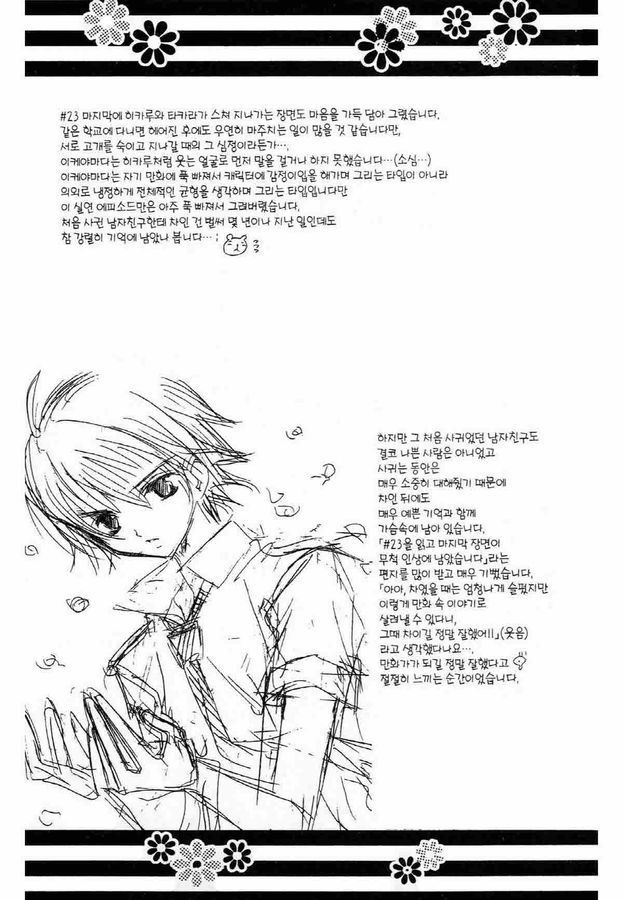 #23 마지막에 히카루와 타카라가 스쳐 지나가는 장면도 마음을 가득 담아 그렸습니다.
같은 학교에 다니면 헤어진 후에도 우연히 마주치는 일이 많을 것 같습니다만,
서로 고개를 숙이고 지나갈 때의 그 심정이라든가…,
이케야마다는 히카루처럼 웃는 얼굴로 먼저 말을 걸거나 하지 못했습니다…(소심…)
이케야마다는 자기 만화에 푹 빠져서 캐릭터에 감정이입을 해가며 그리는 타입이 아니라
의외로 냉정하게 전체적인 균형을 생각하며 그리는 타입입니다만
이 실연 에피소드만은 아주 푹 빠져서 그려버렸습니다.
처음 사귄 남자친구한테 차인 건 벌써 몇 년이나 지난 일인데도
참 강렬히 기억에 남았나 봅니다…;
하지만 그 처음 사귀었던 남자친구도
결코 나쁜 사람은 아니었고
사귀는 동안은
매우 소중히 대해줬기 때문에
차인 뒤에도
매우 예쁜 기억과 함께
가슴속에 남아 있습니다.
「#23을 읽고 마지막 장면이
무척 인상에 남았습니다」라는
편지를 많이 받고 매우 기뻤습니다.
「아아, 차였을 때는 엄청나게 슬펐지만
이렇게 만화 속 이야기로
살려낼 수 있다니,
그때 차이길 정말 잘했어!!」(웃음)
라고 생각했다나요…
만화가가 되길 정말 잘했다고
절절히 느끼는 순간이었습니다.